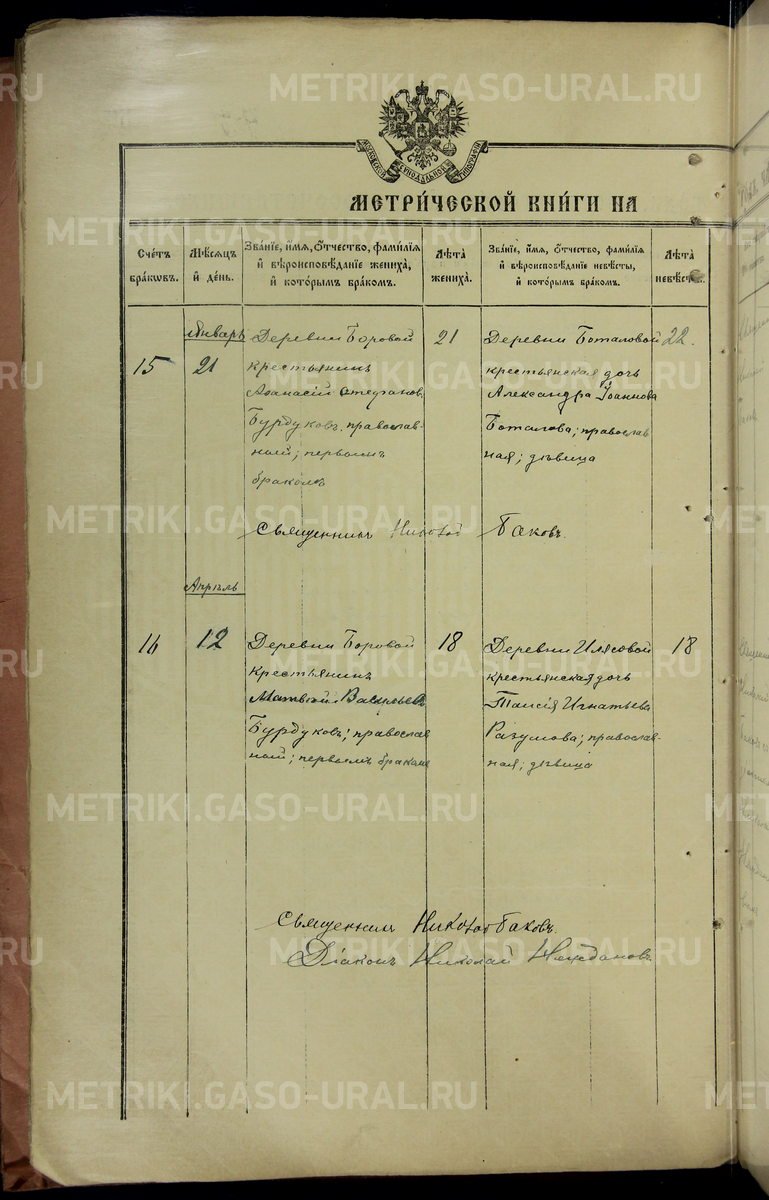 МОСКОВСКОЙ СѴНОДАЛЬНОЙ ТИПОГРАФІИ
МЕТРИ́ЧЕСКОЙ КНИ́ГИ НА
Сче́тъ бра́ковъ.
Мѣ́сяцъ и҆ де́нь.
Зва́нїе, и҆́мя, ѻ҆́тчество, фами́лїя и҆ вѣроисповѣ́данїе жениха̀, и҆ кото́рымъ бра́комъ.
Лѣ́та жениха̀.
Зва́нїе, и҆́мя, ѻ҆́тчество, фами́лїя и҆ вѣроисповѣ́данїе невѣ́сты, и҆ кото́рымъ бра́комъ.
Лѣ́та невѣ́сты.
Январь
15
21
Деревни Боровой
крестьянинъ
Аѳанасій Стефановъ
Бурдуковъ, православ-
ный; первымъ
бракомъ
21
Деревни Боталовой
крестьянская дочь
Александра Іоаннова
Боталова; православ
ная; дѣвица
22.
Священникъ Николай Баковъ.
Апрѣль
16
12
Деревни Боровой
крестьянинъ
Матвѣй Васильевъ
Бурдуковъ; православ
ный; первымъ бракомъ
18
Деревни Илясовой
крестьянская дочь
Таисія Игнатьева
Разумова; православ-
ная; дѣвица
18
Священникъ Николай Баковъ.
Діаконъ Николай
METRIKI.GASO-URAL.RU